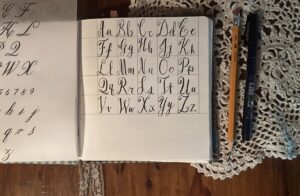 E F
K L
Q
W X
6 7 8 9
h i j
q r s
z
Aa Bb Cc Dd Ee
Ff Gg Hh Ii Jj Kk
Ll Mm Nn Oo Pp
Qq Rr Ss Tt Uu
Vv Ww Xx Yy Zz